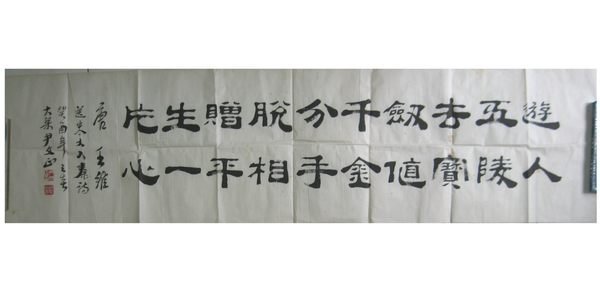 遊人
五陵
去寶
劍值
千金
分手
脫相
贈平
生一
片心
唐 王維
送朱大入秦詩
癸酉年
大梁尹文正